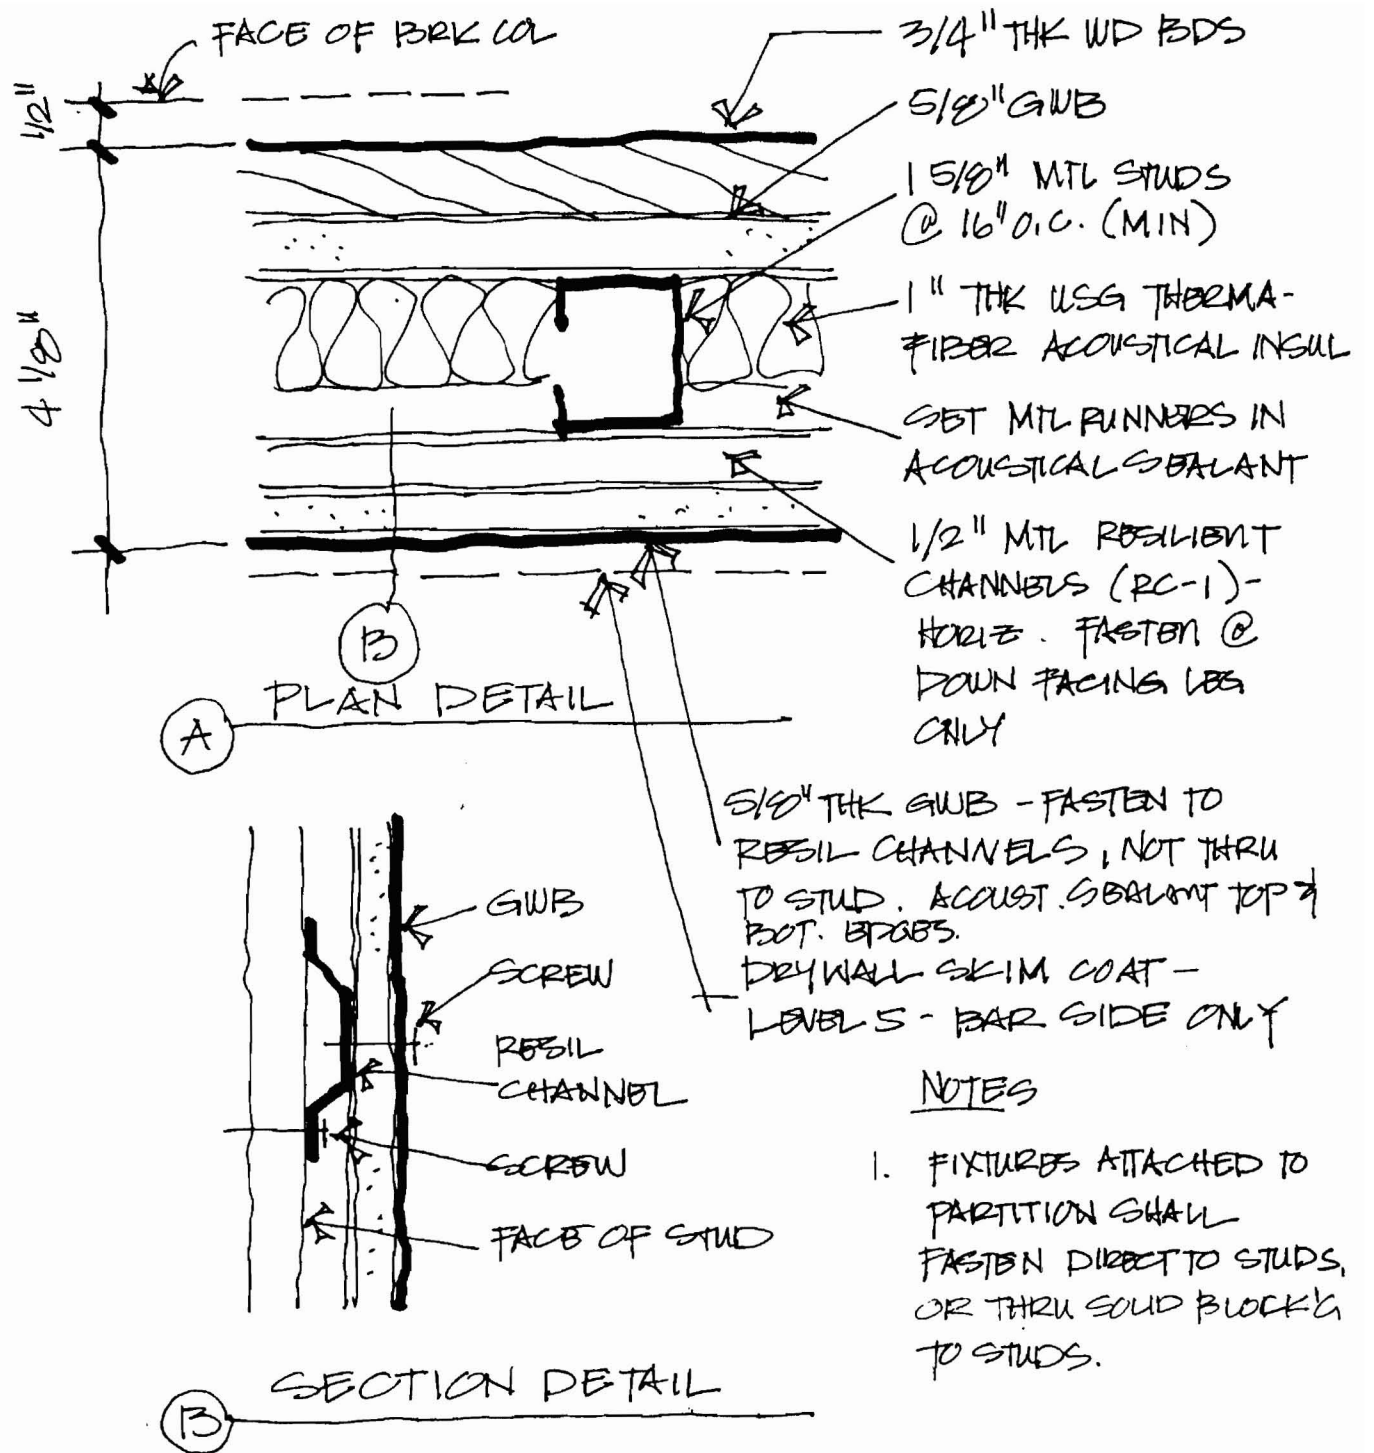 FACE OF BRK COL
1/2"
4 1/8"
3/4" THK WD BDS
5/8" GWB
1 5/8" MTL STUDS
@ 16" O.C. (MIN)
1" THK USG THERMA-
FIBER ACOUSTICAL INSUL
SET MTL RUNNERS IN
ACOUSTICAL SEALANT
1/2" MTL RESILIENT
CHANNELS (RC-1)-
HORIZ. FASTEN @
DOWN FACING LEG
ONLY
B
A
PLAN DETAIL
5/8" THK GWB - FASTEN TO
RESIL CHANNELS, NOT THRU
TO STUD. ACOUST. SEALANT TOP &
BOT. EDGES.
DRYWALL SKIM COAT -
LEVEL 5 - BAR SIDE ONLY
GWB
SCREW
RESIL
CHANNEL
SCREW
FACE OF STUD
NOTES
1. FIXTURES ATTACHED TO
PARTITION SHALL
FASTEN DIRECT TO STUDS,
OR THRU SOLID BLOCK'G
TO STUDS.
B
SECTION DETAIL